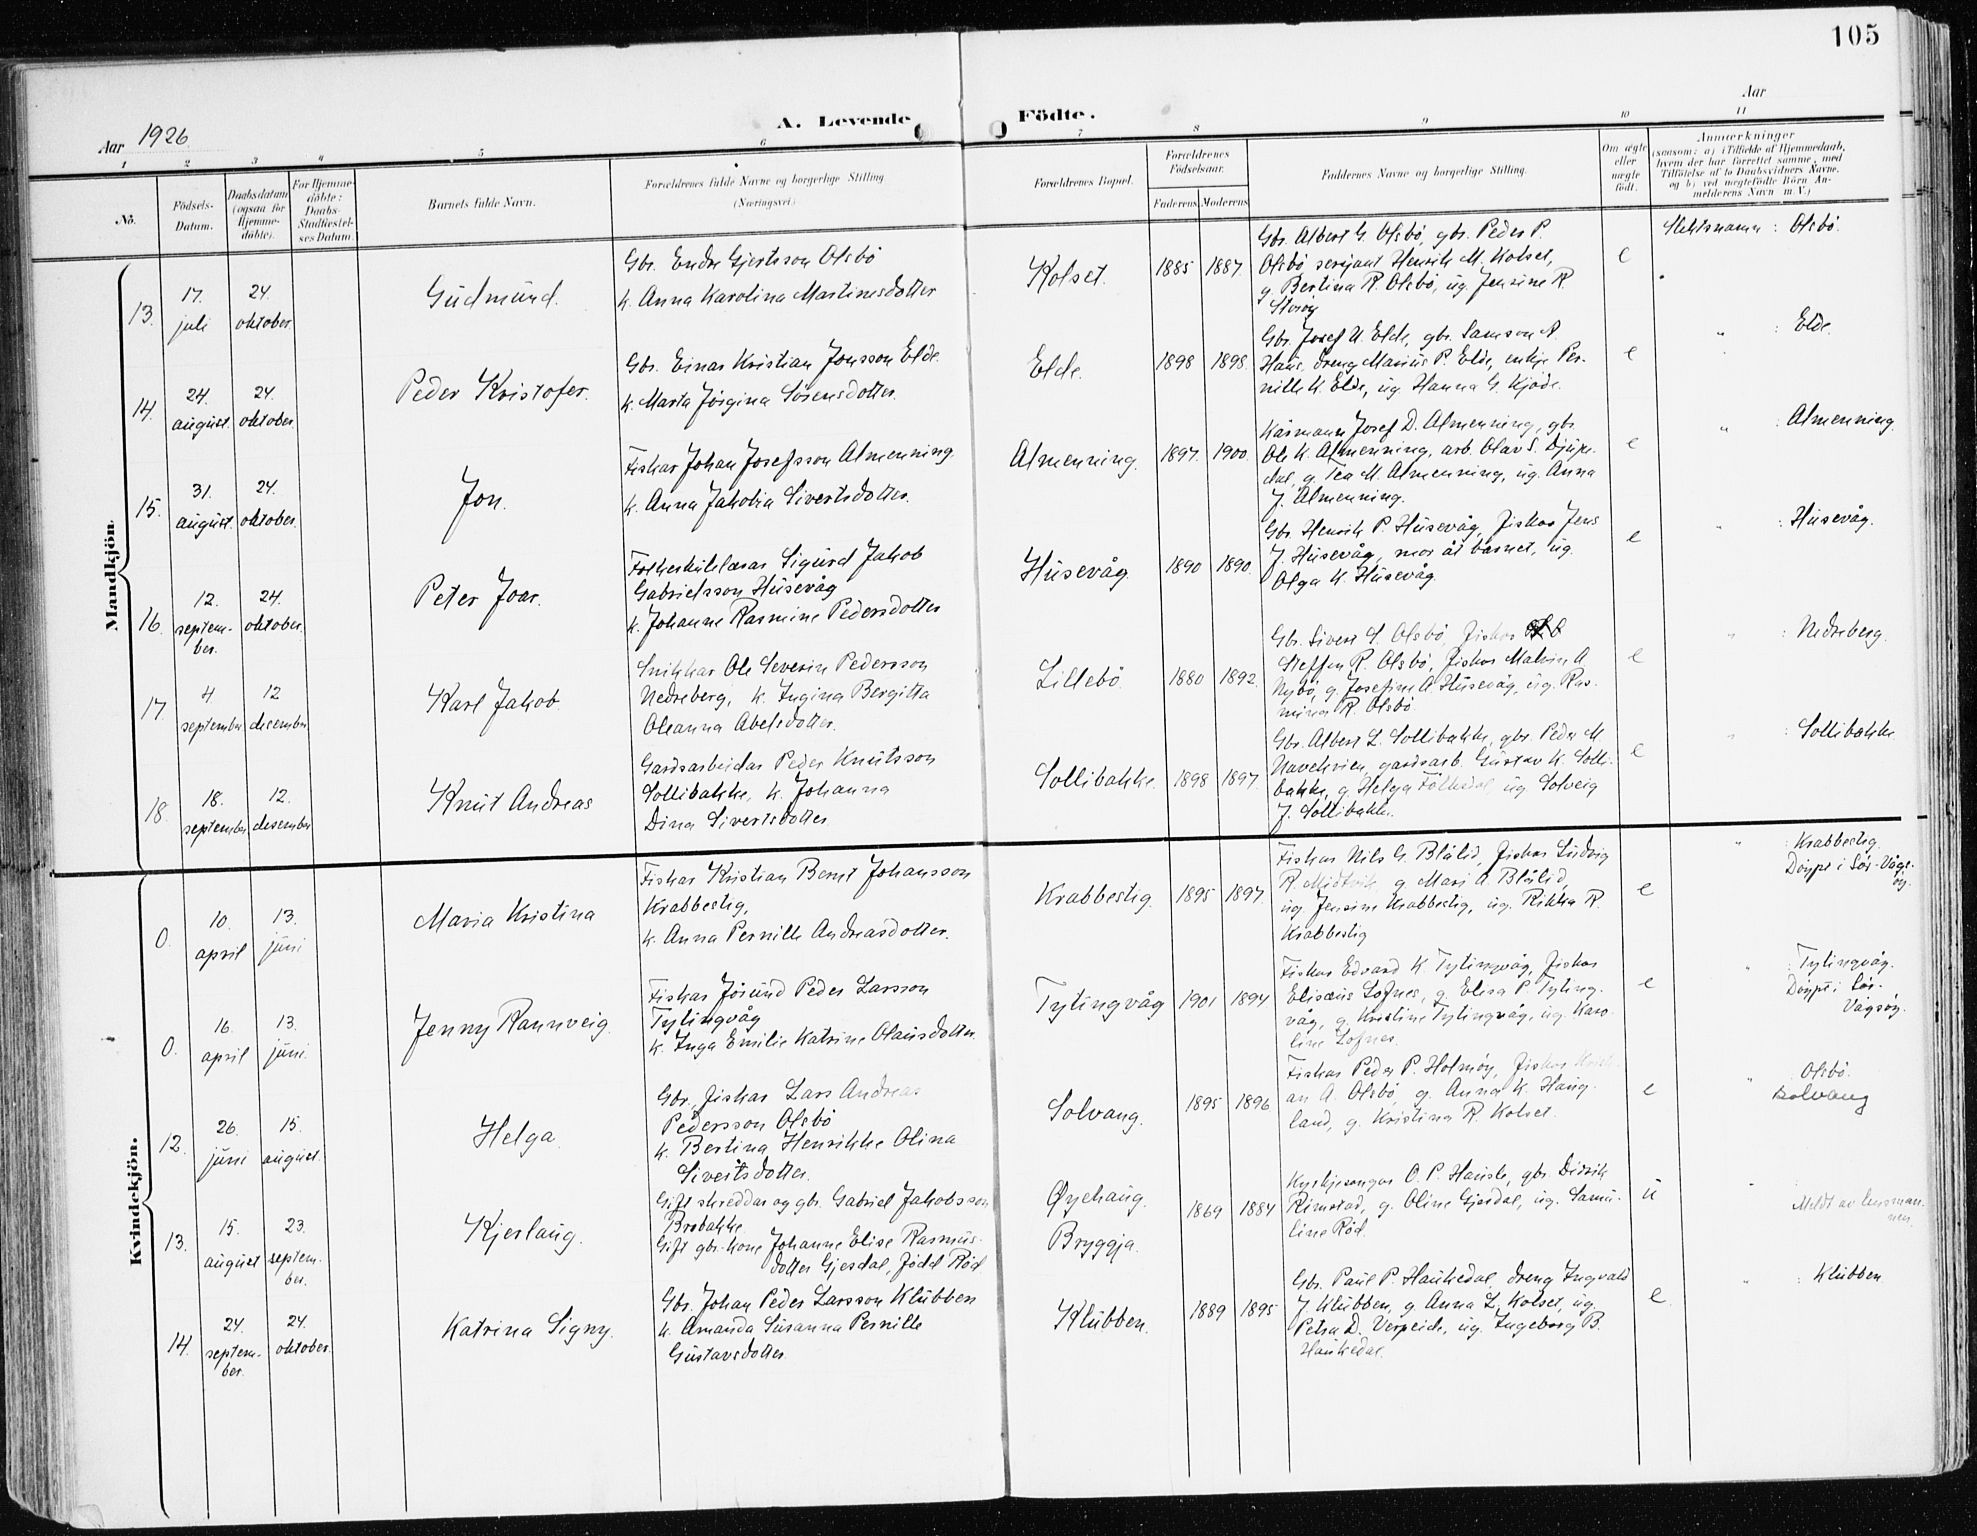 105
Aar 1926
A. Levende Födte.
Aar
1 2 3 4 5 6 7 8 9 10 11
No.
Födsels-Datum.
Daabsdatum (ogsaa for Hjemmedöbte).
For Hjemmedöbte: Daabs-Stadfæstelses Datum.
Barnets fulde Navn.
Forældrenes fulde Navne og borgerlige Stilling
(Næringsvei)
Forældrenes Bopæl.
Forældrenes Födselsaar.
Faderens Moderens
Faddernes Navne og borgerlige Stilling.
Om ægte eller uægte födt.
Anmærkninger
(saasom: a) i Tilfælde af Hjemmedaab,
hvem der har forrettet samme, med
Tilföielse af to Daabsvidners Navne.
og b) ved uægtefödte Börn An-
melderens Navn m. V.)
Mandkjön.
13.
17. juli
24. oktober.
Gudmund.
Gbr. Endre Gjertsson Olsbö
k. Anna Karolina Martinusdotter
Kolset.
1885 1887
Gbr. Albert G. Olsbö, gbr. Peder P.
Olsbö serijant Henrik M. Kolset,
g. Bertina R. Olsbö, ug. Jensine R.
Storöy
e
Slektsnamn : Olsbö.
14.
24. august.
24. oktober.
Peder Kristofer.
Gbr. Einar Kristian Jonsson Elde.
k. Marta Jörgina Sörensdotter.
Elde.
1898 1898.
Gbr. Josef A. Elde, gbr. Samson A.
Haus, dreng Marius P. Elde, enkje Per-
nille K. Elde, ug. Hanna G. Kjöde.
e
" : Elde.
15.
31. august.
24. oktober.
Jon.
Fiskar Johan Josefsson Almenning.
k. Anna Jakobia Sivertsdotter.
Almenning.
1897. 1900.
Kårmann Josef D. Almenning, gbr.
Ole K. Almenning, arb. Olav S. Djupe-
dal, g. Tea M. Almenning, ug. Anna
J. Almenning.
e
" : Almenning.
16.
12. septem-
ber.
24. oktober.
Peter Joar.
Folkeskulelærar Sigurd Jakob
Gabrielsson Husevåg
k. Johanne Rasmine Pedersdotter
Husevåg.
1890 1890.
Gbr. Henrik P. Husevåg, fiskar Jens
J. Husevåg, mor åt barnet, ug.
Olga K. Husevåg.
e
" : Husevåg.
17.
4 september
12 desember
Karl Jakob.
Snikkar Ole Severin Pedersson
Nedreberg, k. Ingina Bergitta
Oleanna Abelsdotter.
Lillebö.
1880 1892.
Gbr. Sivert S. Olsbö, fiskar
Steffen R. Olsbö, fiskar Matvin A.
Nybö, g. Josefine A. Husevåg, ug. Ras-
mina R. Olsbö.
e
" : Nedreberg.
18.
18. september
12. desember
Knut Andreas
Gardsarbeidar Peder Knutsson
Sollibakke, k. Johanna
Dina Sivertsdotter.
Sollibakke.
1898 1897.
Gbr. Albert L. Sollibakke, gbr. Peder M.
Navekvien, gardsarb. Gustav K. Solli-
bakke, g. Helga Folkedal, ug. Solveig
J. Sollibakke.
e
" : Sollibakke.
Kvindekjön.
0.
10. april
13. juni
Maria Kristina
Fiskar Kristian Bernt Johansson
Krabbestig,
k. Anna Pernille Andreasdotter.
Krabbestig.
1895 1897.
Fiskar Nils G. Blålid, fiskar Ludvig
R. Midtvik, g. Mari A. Blålid,
ug. Jensine Krabbestig, ug. Rikka R.
Krabbestig
e
" : Krabbestig.
Döypt i Sör-Vågs-
öy.
0.
16. april
13. juni.
Jenny Rannveig.
Fiskar Jörund Peder Larsson
Tytingvåg
k. Inga Emilie Katrine Olausdotter.
Tytingvåg
1901 1894
Fiskar Edvard K. Tytingvåg, fiskar
Elisæus Lofnes, g. Elisa P. Tyting-
våg, g. Kristine Tytingvåg, ug. Karo-
line Lofnes.
e
" : Tytingvåg.
Döypt i Sör-
Vågsöy.
12.
26. juni
15. august.
Helga.
Gbr. fiskar Lars Andreas
Pedersson Olsbö
k. Bertina Henrikke Olina
Sivertsdotter.
Solvang.
1895 1896
Fiskar Peder P. Holmöy, fiskar
an A. Olsbö, g. Anna K. Haug-
land, g. Kristina R. Kolset.
e
" : Olsbö.
Solvang
13.
15. august
23. septem-
ber.
Kjerlaug.
Gift skreddar og gbr. Gabriel Jakobsson
Brobakke
Gift gbr-kone Johanne Elise Rasmus-
dotter Gjesdal, född Röd.
Öyehaug.
Bryggja.
1869 1884
Kyrkjesongar O. P. Hausle, gbr. Didrik
Rimstad, g. Oline Gjesdal, ug. Samu-
line Röd.
u
"
Meldt av lensman-
nen.
14.
24. septem-
ber.
24. oktober.
Katrina Signy.
Gbr. Johan Peder Larsson Klubben
k. Amanda Susanna Pernille
Gustavsdotter.
Klubben.
1889 1895
Gbr. Paul P. Haukedal, dreng Ingvald
J. Klubben, g. Anna L. Kolset, ug.
Petra D. Verpeide, ug. Ingeborg B.
Haukedal.
e.
" : Klubben